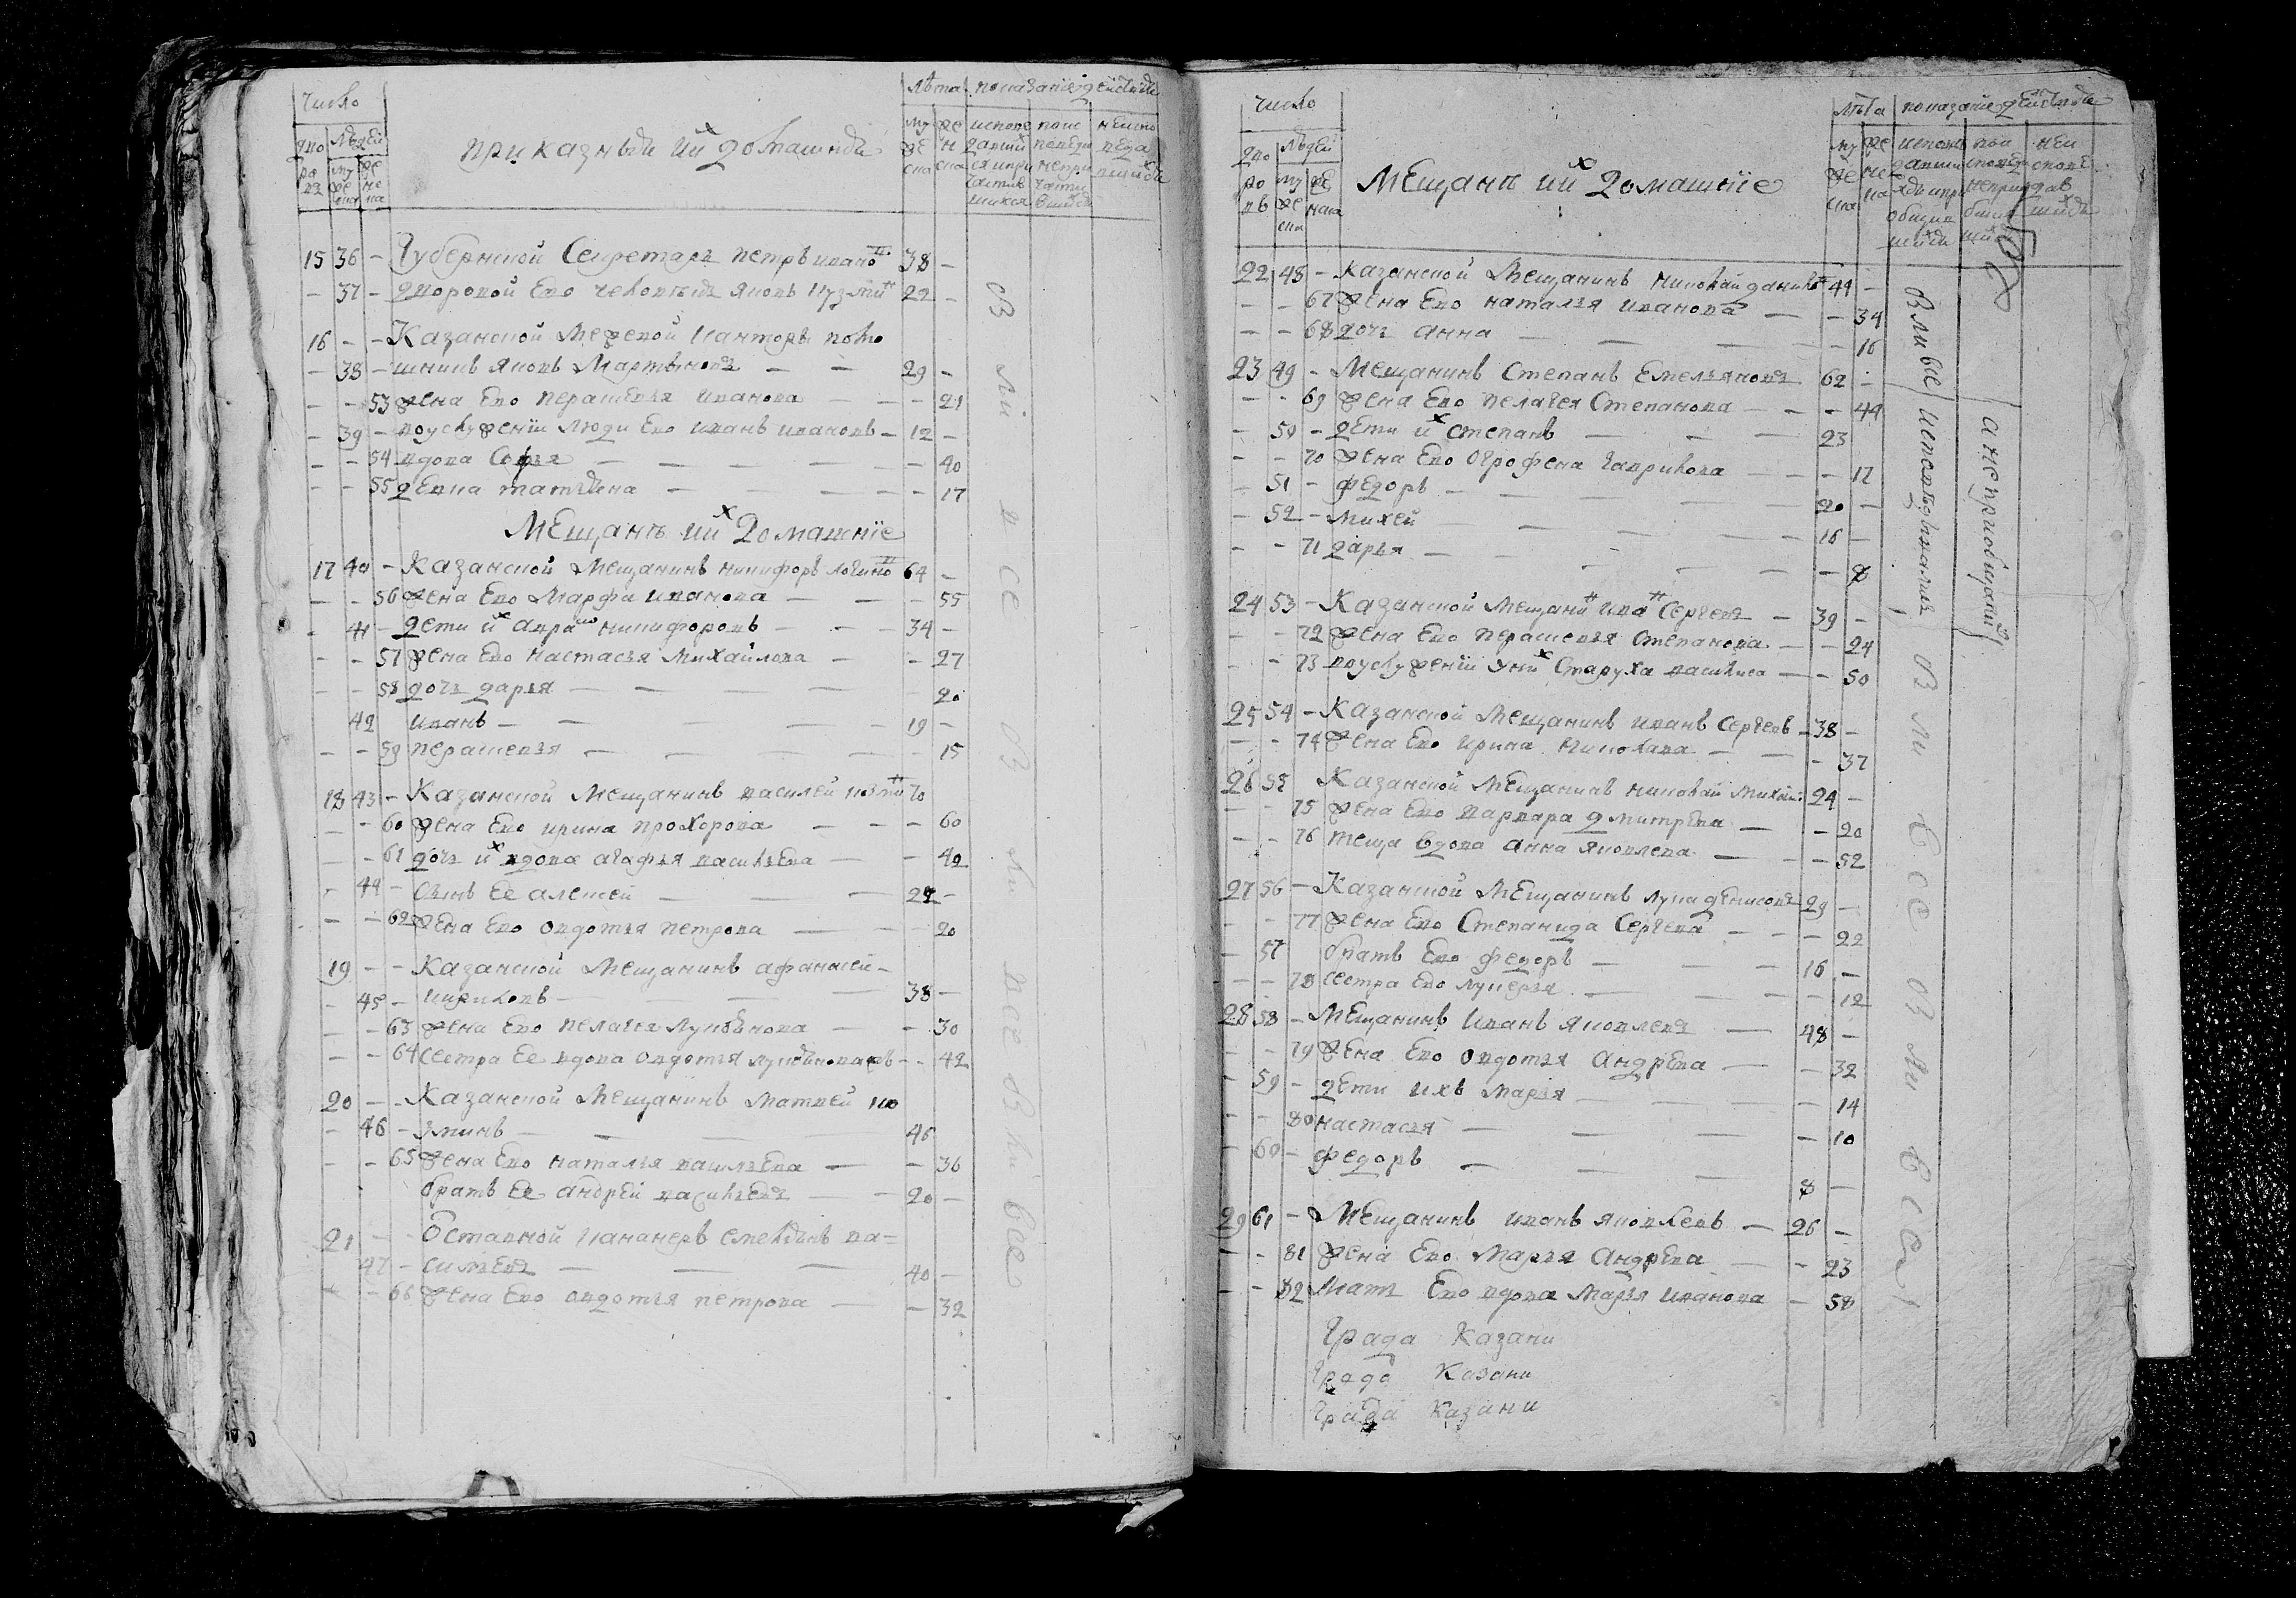 число
дворовъ
людей
мужеска
женска
приказныя и ихъ домашния
лѣта
показание действа
мужеска
женска
15 36 – Губернской Секретарь Петръ Ивановъ 38 –
– 37 – дворовой Ево человекъ Яковъ Кузминъ 22 –
16 – – Казанской Межевой Канторы
– 38 – Яковъ Мартыновъ – – 29 –
– – 53 жена Ево Парасковья Иванова – – – 21
– 39 – в услужении люди Ево Иванъ Ивановъ – 12 –
– – 54 вдова Софья – – – – – 40
– – 55 девка Татьяна – – – – – 17
Мещанъ и ихъ Домашние
17 40 – Казанской Мещанинъ Никифоръ Логиновъ 64 –
– – 56 жена Ево Марфа Иванова – – – 55
– 41 – дети ихъ Аврамъ Никифоровъ – – – 34 –
– – 57 жена Ево Настасья Михайлова – – 27
– – 58 дочь Дарья – – – – 20
42 Иванъ – – – – 19 –
– – 59 Парасковья – – – – – 15
18 43 – Казанской Мещанинъ Василей Козминъ 70
– – 60 жена Ево Ирина Прохорова – – – 60
– – 61 дочь ихъ вдова Агафья Васильева – – 42
– 44 – сынъ Ее Алексей – – – 22 –
– – 62 жена Ево Овдотья Петрова – – – 20
19 – – Казанской Мещанинъ Афанасей –
– 45 – Кириловъ – – – 38 –
– – 63 жена Ево Пелагея Лукоянова – – 30
– – 64 Сестра Ее вдова Овдотья Лукоянова – – 42
20 – – Казанской Мещанинъ Матвей Ко
– 46 – зминъ – – – 46
– – 65 жена Ево Наталья Васильева – – 36
братъ Ее Андрей Васильевъ – – 20 –
21 – – Отставной Канонеръ ва=
47 – сильевъ – – – 40 –
– – 66 жена Ево Овдотья Петрова – – 32
В ли все В ли все В ли все
число
дворовъ
людей
мужеска
женска
Мещанъ и ихъ Домашние
лѣта
показание действа
мужеска
женска
22 48 – Казанской Мещанинъ Николай Даниловъ 44 –
– – 67 жена Ево Наталья Иванова – – 34
– – 68 дочь Анна – – – – 16
23 49 – Мещанинъ Степанъ Емельяновъ 62 –
– – 69 жена Ево Пелагея Степанова – – – 44
– 50 – дети ихъ Степанъ – – – 23
– – 70 жена Ево Огрофена Гаврилова – – – 17
– 51 – Федоръ – – – – 20 –
– 52 – Михей – – – 16 –
– – 71 Дарья – – – – – 8
24 53 – Казанской Мещанинъ Иванъ Сергеевъ – 39 –
– – 72 жена Ево Парасковья Степанова – – 24
– – 73 в услужении у нихъ Старуха Василиса – – 50
25 54 – Казанской Мещанинъ Иванъ Сергеевъ – 38 –
– – 74 жена Ево Ирина Николаева – – – 37
26 55 Казанской Мещанинъ Николай Михайл: 24 –
– – 75 жена Ево Варвара Дмитрева – – 20
– – 76 теща вдова Анна Яковлева – – – 52
27 56 – Казанской Мещанинъ Лука Денисовъ 29 –
– – 77 жена Ево Степанида Сергева – – – 22
– 57 братъ Ево Федоръ – – – 16 –
– – 78 сестра Ево Лукерья – – – 12
28 58 – Мещанинъ Иванъ Яковлевъ – 48 –
– – 79 жена Ево Овдотья Андрева – – 32
– 59 – дети ихъ Марья – – – 14
– – 80 Настасья – – – – 10
– 60 – Федоръ – – – 8 –
29 61 – Мещанинъ Иванъ Яковлевъ – 26 –
– – 81 жена Ево Марья Андрева – – 23
– – 82 Мать Ево вдова Марья Иванова – 58
Града Казани
Града Казани
Града Казани
В ли все исповедывались В ли Все В ли Все
а не приобщались